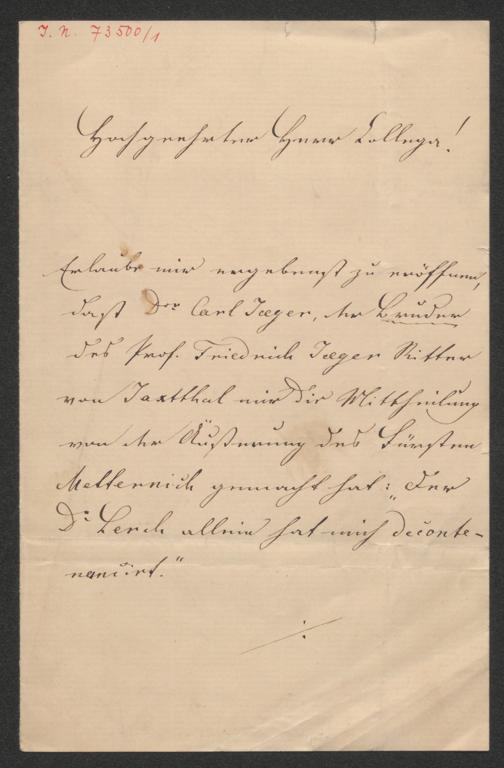 I. N. 73500/1
Hochgeehrter Herr Collega!
Erlaube mir ergebenst zu eröffnen,
daß Dor Carl Jaeger, der Bruder
des Prof. Friedrich Jaeger Ritter
von Jaxtthal mir die Mittheilung
von der Äußerung des Fürsten
Metternich gemacht hat: „Der
Dr Lerch allein hat mich deconte-
nancirt."